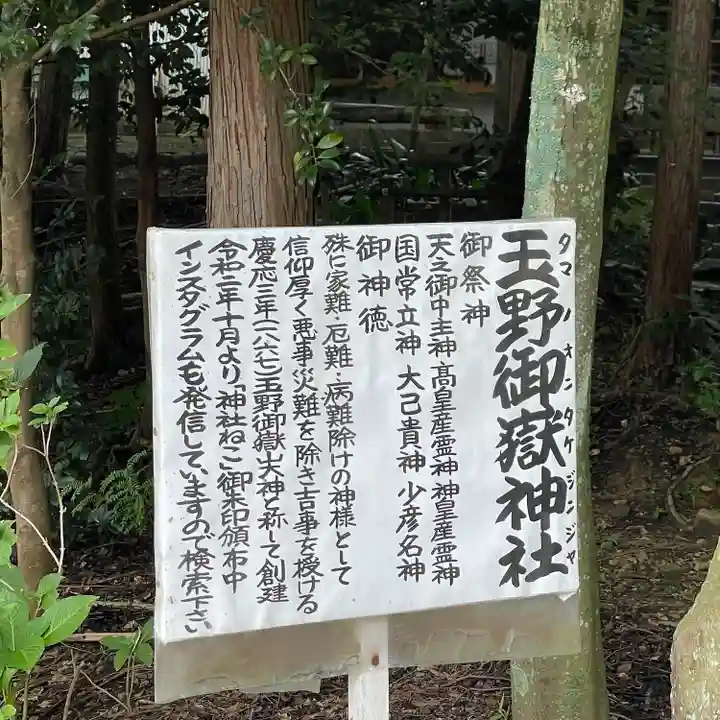 玉野御嶽神社
タマノオンタケジンジャ
御祭神
天之御中主神・高皇産霊神・神皇産霊神
国常立神 大己貴神 少彦名神
御神徳
殊に家難・厄難・病難除けの神様として
信仰厚く悪事災難を除き吉事を授ける
慶応三年(一八六七)玉野御嶽大神と称して創建
令和二年十月より「神社ねこ」御朱印頒布中
インスタグラムも発信していますので検索下さい